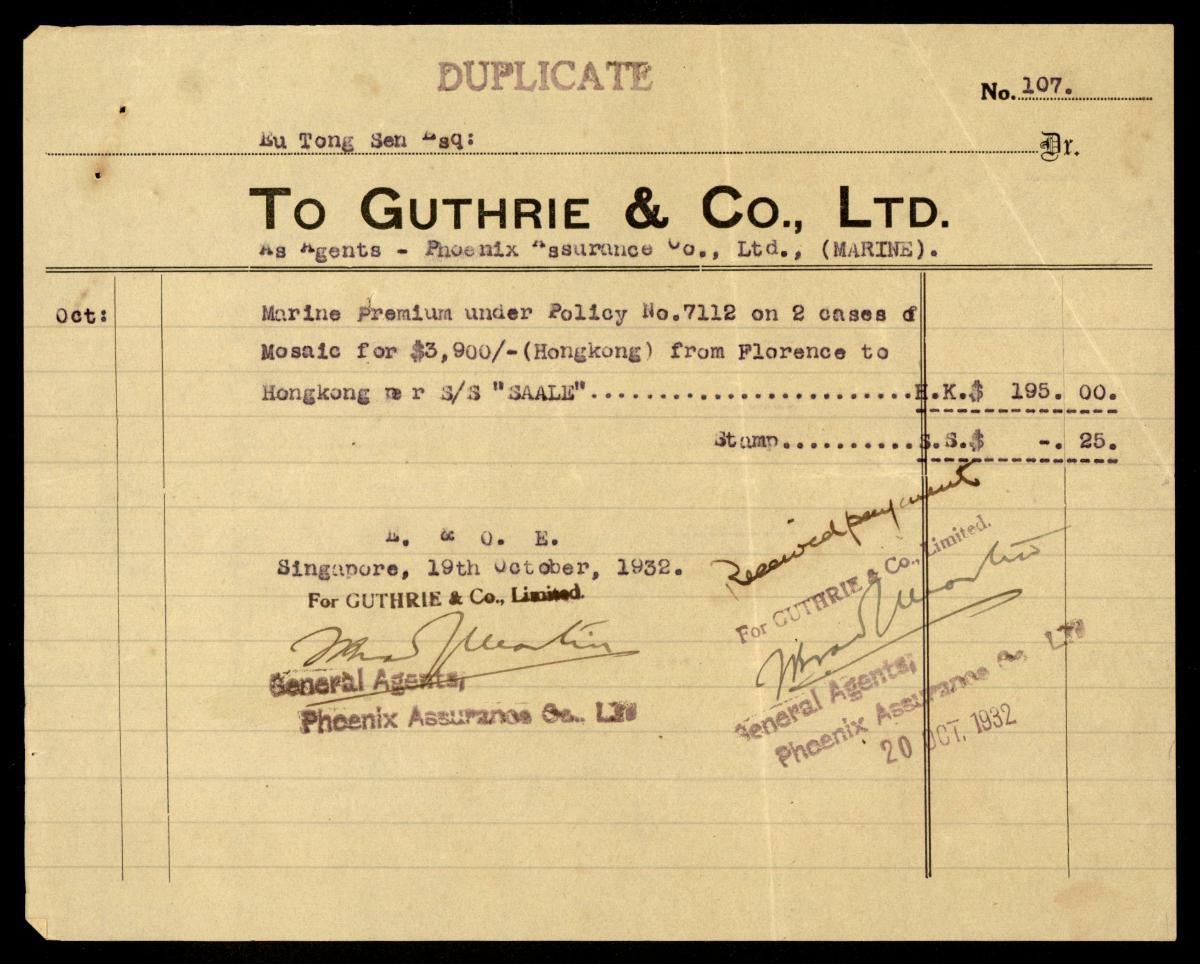 DUPLICATE
No. 107.
Eu Tong Sen Esq:
Dr.
To GUTHRIE & Co., LTD.
As Agents - Phoenix Assurance Co., Ltd., (MARINE).
Oct:
Marine Premium under Policy No.7112 on 2 cases of
Mosaic for $3,900/-(Hongkong) from Florence to
Hongkong per S/S "SAALE"........................H.K.$ 195. 00.
Stamp..........S.S.$ -. 25.
E. & O. E.
Singapore, 19th October, 1932.
For GUTHRIE & Co., Limited.
General Agents,
Phoenix Assurance Co., LTD
Received payment
For GUTHRIE & Co., Limited.
General Agents,
Phoenix Assurance Co. LTD
20 OCT. 1932